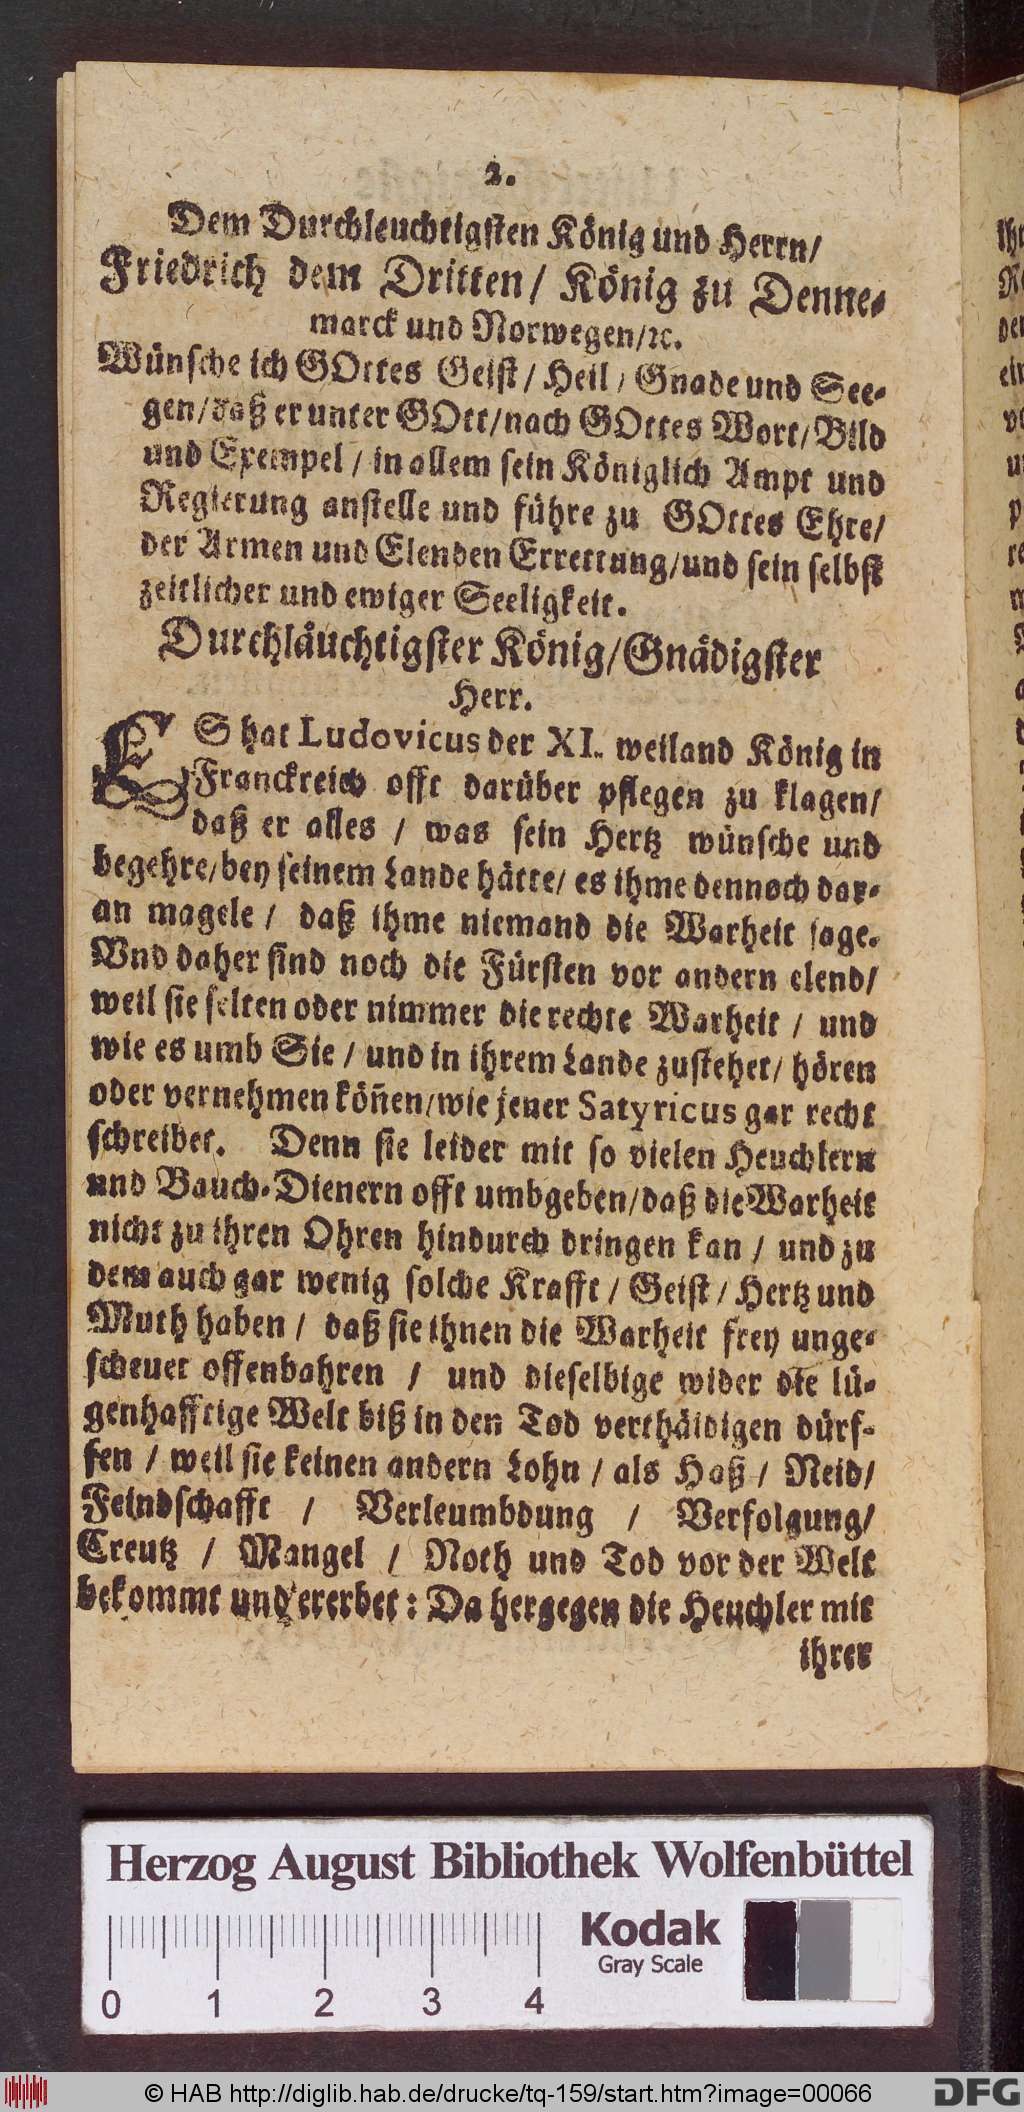 2.
Dem Durchleuchtigsten König und Herrn/
Friedrich dem Dritten/ König zu Denne-
marck und Norwegen/ꝛc.
Wünsche ich GOttes Geist/ Heil/ Gnade und See-
gen/daß er unter GOtt/nach GOttes Wort/Bild
und Exempel/ in allem sein Königlich Ampt und
Regierung anstelle und führe zu GOttes Ehre/
der Armen und Elenden Errettung/und sein selbst
zeitlicher und ewiger Seeligkeit.
Durchläuchtigster König/Gnädigster
Herr.
ES hat Ludovicus der XI. weiland König in
Franckreich offt darüber pflegen zu klagen/
daß er alles / was sein Hertz wünsche und
begehre/bey seinem Lande hätte/ es ihme dennoch dar-
an magele / daß ihme niemand die Warheit sage.
Vnd daher sind noch die Fürsten vor andern elend/
weil sie selten oder nimmer die rechte Warheit / und
wie es umb Sie / und in ihrem Lande zustehet/ hören
oder vernehmen köñen/wie jener Satyricus gar recht
schreibet. Denn sie leider mit so vielen Heuchlern
und Bauch-Dienern offt umbgeben/daß die Warheit
nicht zu ihren Ohren hindurch dringen kan / und zu
dem auch gar wenig solche Krafft / Geist / Hertz und
Muth haben / daß sie ihnen die Warheit frey unge-
scheuet offenbahren / und dieselbige wider die lü-
genhafftige Welt biß in den Tod verthäidigen dürf-
fen / weil sie keinen andern Lohn / als Haß / Neid/
Feindschafft / Verleumbdung / Verfolgung/
Creutz / Mangel / Noth und Tod vor der Welt
bekommt und ererbet : Da hergegen die Heuchler mit
ihrer
Herzog August Bibliothek Wolfenbüttel
Kodak
Gray Scale
0 1 2 3 4
© HAB http://diglib.hab.de/drucke/tq-159/start.htm?image=00066
DFG